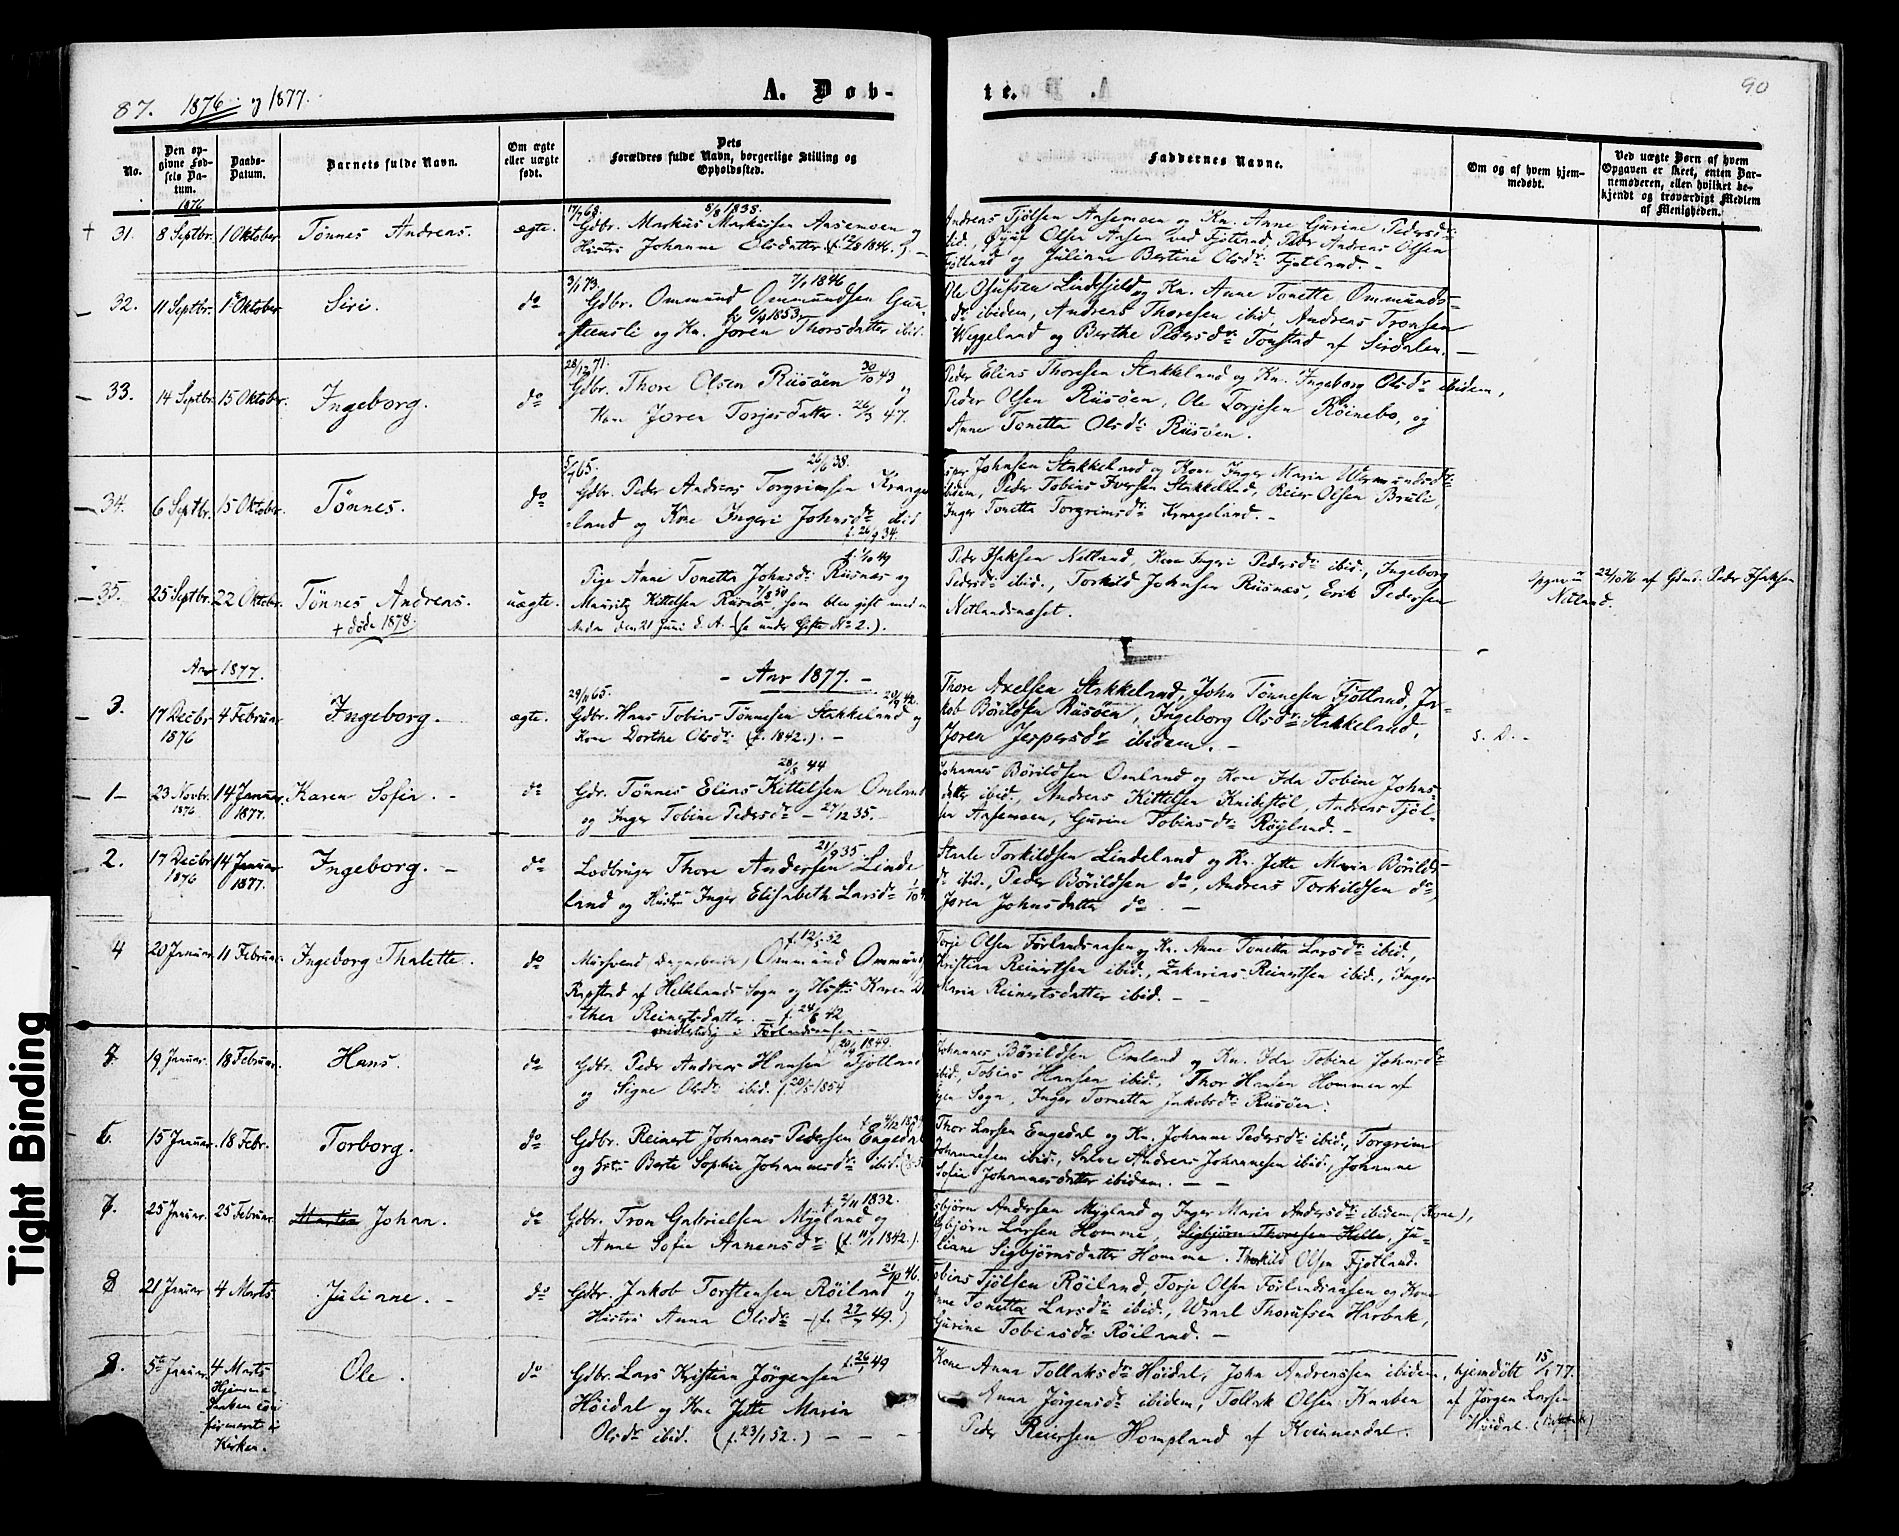 87. 1876 og 1877.
A. Døb-
te.
90
No.
Den op-
givne Fød-
sels Da-
tum.
Daabs-
Datum.
Barnets fulde Navn.
Om ægte
eller uægte
født.
Dets
Forældres fulde Navn, borgerlige Stilling og
Opholdssted.
Faddernes Navne.
Om og af hvem hjem-
medøbt.
Ved uægte Børn af hvem
Opgaven er skeet, enten Bar-
nemoderen, eller hvilket be-
kjendt og troværdigt Medlem
af Menigheden.
1876
31. 8 Septbr. 1 Oktober Tønnes Andreas. ægte.
Gdbr. Markus Markusen Aasemoen og
Hustru Johanne Olsdatter
Andreas Tjølsen Aasemoen og Kn. Anne Gurine Pedersdr
ibid., Olsen Aasen ved Fjotland, Peder Andreas Olsen
Fjotland og Juliane Bertine Olsdr Fjotland. -
32. 11 Septbr. 1 Oktober Siri. do
Gdbr. Ommund Ommundsen Gun-
stensli og Kn. Joren Thorsdatter ibid.
Ole Lindefjeld og Kn. Anne Tonette Ommunds-
dr ibidem, Andreas Thoresen ibid. Andreas Tronsen
Weggeland og Berthe Pedersdr Tonstad af Sirdalen. -
33. 14 Septbr. 15 Oktober Ingeborg. do
Gdbr. Thore Olsen Risøen 30/10 43 og
Kone Joren Torjesdatter. 26/3 47.
Peder Elias Thoresen Stakkeland og Kn. Ingeborg Olsdr ibidem,
Peder Olsen Risøen, Ole Torjesen Røinebo, og
Anne Tonetta Olsdr Risøen.
34. 6 Septbr. 15 Oktober Tønnes. do
Gdbr. Peder Andreas Torgrimsen Krage-
land og Kone Ingeri Johnsdr ibid.
Johnsen Stakkeland og Kone Inger Maria
ibidem, Peder Tobias Iversen Stakkeland, Reier Olsen Bruli,
Inger Tonetta Torgrimsdr Krageland. -
35. 25 Septbr. 22 Oktbr. Tønnes Andreas. uægte.
+ døde 1878.
Pige Anne Tonetta Johnsdr Risnæs og
Mauritz Kittelsen Risnæs, som blev gift med
den 21 Juni d. A. (se under Gifte No 2.).
Peder Isaksen Netland, Kone Ingeri Pedersdr ibid., Ingeborg
Pedersdr ibid., Torkild Johnsen Risnæs, Erik Pedersen
Netlandsnæset.
22/10 76 af Gdmd. Peder Isaksen
Netland.
Aar 1877.
- Aar 1877. -
3. 17 Decbr 1876 4 Februar Ingeborg. ægte.
Gdbr. Hans Tobias Tønnesen Stakkeland og
Kone Dorthe Olsdr (f. 1842.). -
Thore Axelsen Stakkeland, John Tønnesen Fjotland, Ja-
kob Børildsen Risøen, Ingeborg Olsdr Stakkeland,
Joren Jespersdr ibidem. -
s. D. -
1- 23 Novbr. 1876 14 Januar 1877. Karen Sofie. - do
Gdr. Tønnes Elias Kittelsen Omland
og Inger Tobine Pedersdr - 27/12 35. -
Johannes Børildsen Omland og Kone Ida Tobine Johns-
datter ibid., Andreas Kittelsen Knibestøl, Andreas Tjøl-
sen Aasemoen, Gurine Tobiasdr Røyland. -
2. 17 Decbr 1876 14 Januar 1877. Ingeborg. - do
Lodbruger Thore Andersen Linde-
land og Hustru Inger Elisabeth Larsdr
Staale Torkildsen Lindeland og Kn. Jette Maria Børilds-
dr ibid., Peder Børildsen do, Andreas Torkildsen do,
Joren Johnsdatter do. -
4 20 Januar 11 Februar Ingeborg Thalette. do
Ommund Ommunds
Rapstad af Helleland Sogn og Hustru Karen Do-
thea Reinertsdatter. - f. 24/6 42
midlertidig i Førlandsaasen. -
Torje Olsen Førlandsaasen og Kn. Anne Tonetta Larsdr ibid.,
Kristian Reinertsen ibid., Zakarias Reinertsen ibid., Inger
Maria Reinertsdatter ibid. - -
19 Januar. 18 Februar. Hans. do
Gdbr. Peder Andreas Hansen Fjotland
og Signe Olsdr ibid.
Johannes Børildsen Omland og Kn. Ida Tobine Johnsdr
ibid., Tobias Hansen ibid., Thor Hansen Homme af
Sogn, Inger Tonetta Jakobsdr Risøen.
6. 15 Januar. 18 Febr. Torborg. do
Gdbr. Reinert Johannes Pedersen Engedal
og Hst: Berte Sophie Johannesdr ibid.
Thor Larsen Engedal og Kn. Johanne Pedersdr ibid., Torgrim
Johannesen ibid., Salve Andreas Johannesen ibid., Johanne
Sofie Johannesdatter ibidem. - -
7. 25 Januar. 25 Februar. Martin Johan. do
Gdbr. Tron Gabrielsen Mygland og
Anne Sofie Aanensdr (f. 11/1 1842.)
Andersen Mygland og Inger Maria Andersdr ibidem (Kone),
Sigbjørn Larsen Homme, Sigbjørn Thoresen Helle, Ju-
liane Sigbjørnsdatter Homme. Thorkild Olsen Fjotland.
8 21 Januar 4 Marts Juliane. - do
Gdbr. Jakob Torstensen Røiland og
Hustru Anna Olsdr
Tobias Tjølsen Røiland, Torje Olsen Førlandsaasen og Kone
Anne Tonetta Larsdr ibid., Harbak,
Gurine Tobiasdr Røiland. -
5te Januar 4 Marts
Hjemme-
daaben con-
firmeret i
Kirken.
Ole do
Gdbr. Lars Kristian Jørgensen
Høidal og Kone Jette Maria
Olsdr ibid. (f. 23/1 52.) - - -
Kone Anna Tollaksdr Høidal, John Andreassen ibidem,
Anna Jørgensdr ibidem, Tollak Olsen Knaben
Peder Reiersen Hompland af Kvinnesdal.
hjemdøbt 15/1 77.
af Jørgen Larsen
Høidal.
Tight Binding